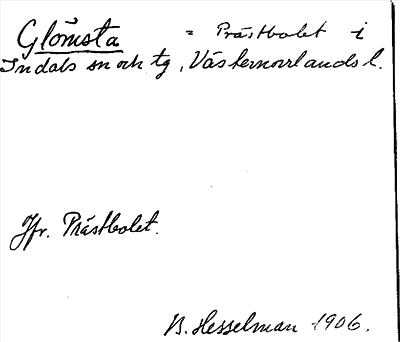 Glömsta = Prästbolet i
Indals sn och tg, Västernorrlands l.
Jfr. Prästbolet.
B. Hesselman 1906.